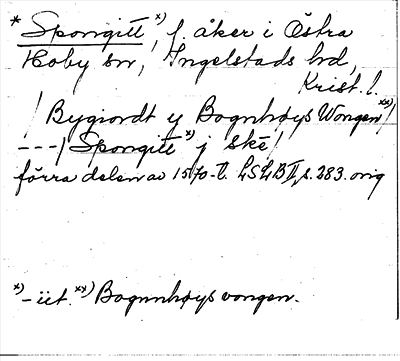 * Spongitt x), f. åker i Östra
Hoby sn, Ingelstads hd,
Krist. l.
/ Bygiordt y Bognhøys Wongen xx) /
---/ Spongitt x) j Ske /
förra delen av 1570-t. LSLB II, s. 283. orig
x) -iit. xx) Bognnhøys vongen.